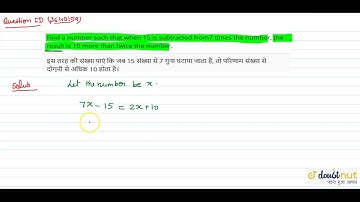 Question ID (3640159)
Find a number such that when 15 is subtracted from7 times the number, the
result is 10 more than twice the number.
इस तरह की संख्या पाएं कि जब 15 संख्या से 7 गुना घटाया जाता है, तो परिणाम संख्या से
दोगुनी से अधिक 10 होता है।
Let the number be x.
7x - 15 = 2x+10
doubtnut